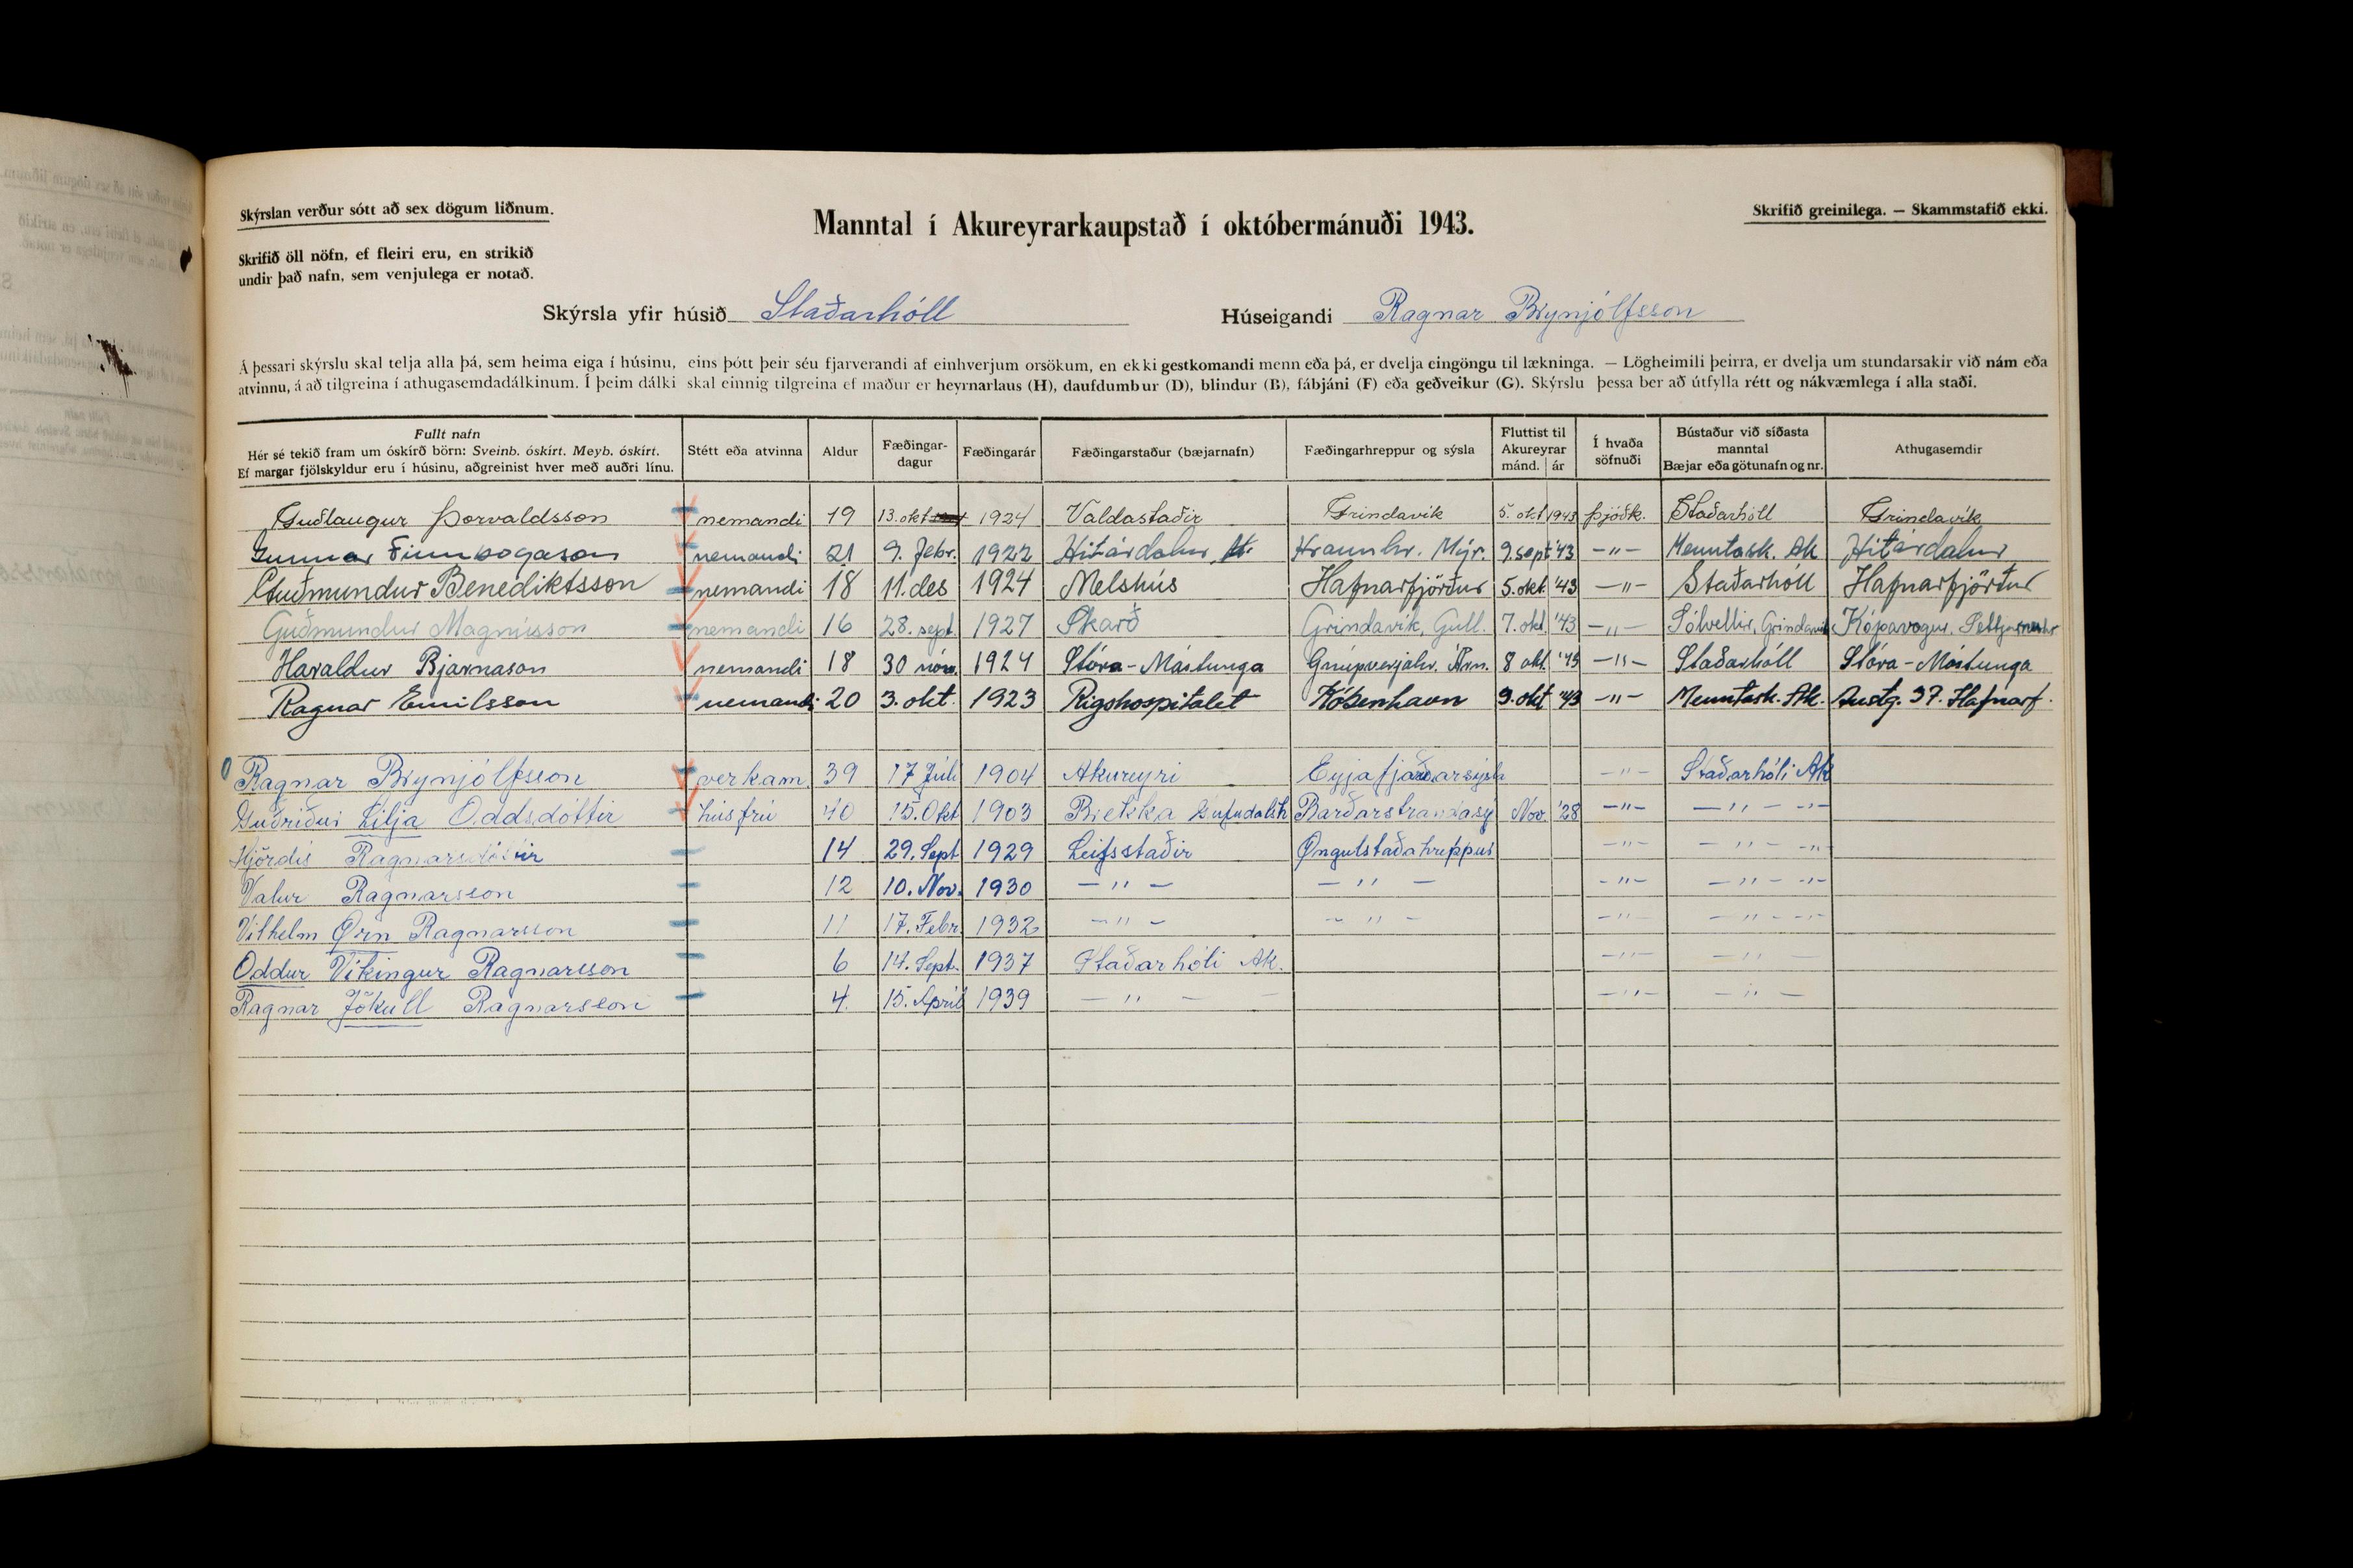 Skýrslan verður sótt að sex dögum liðnum.
Skrifið öll nöfn, ef fleiri eru, en strikið
undir það nafn, sem venjulega er notað.
Manntal í Akureyrarkaupstað í októbermánuði 1943.
Skrifið greinilega. — Skammstafið ekki.
Skýrsla yfir húsið Staðarhóll Húseigandi Ragnar Brynjólfsson
Á þessari skýrslu skal telja alla þá, sem heima eiga í húsinu, eins þótt þeir séu fjarverandi af einhverjum orsökum, en ekki gestkomandi menn eða þá, er dvelja eingöngu til lækninga. — Lögheimili þeirra, er dvelja um stundarsakir við nám eða
atvinnu, á að tilgreina í athugasemdadálkinum. Í þeim dálki skal einnig tilgreina ef maður er heyrnarlaus (H), daufdumbur (D), blindur (B), fábjáni (F) eða geðveikur (G). Skýrslu þessa ber að útfylla rétt og nákvæmlega í alla staði.
Fullt nafn
Hér sé tekið fram um óskírð börn: Sveinb. óskírt. Meyb. óskírt.
Ef margar fjölskyldur eru í húsinu, aðgreinist hver með auðri línu.
Stétt eða atvinna
Aldur
Fæðingar-
dagur
Fæðingarár
Fæðingarstaður (bæjarnafn)
Fæðingarhreppur og sýsla
Fluttist til
Akureyrar
mánd. ár
Í hvaða
söfnuði
Bústaður við síðasta
manntal
Bæjar eða götunafn og nr.
Athugasemdir
Guðlaugur Þorvaldsson nemandi 19 13. okt 1924 Valdastaðir Grindavík 5. okt 1943 þjóðk. Staðarhóll Grindavík
Gunnar Finnbogason nemandi 21 9. febr. 1922 Hítárdalur Hraunhr. Mýr. 9. sept '43 —"— Menntask. Ak Hítárdalur
Guðmundur Benediktsson nemandi 18 11. des 1924 Melshús Hafnarfjörður 5. okt. '43 —"— Staðarhóll Hafnarfjörður
Guðmundur Magnússon nemandi 16 28. sept. 1927 Skarð Grindavík, Gull. 7. okt. '43 —"— Sólvellir, Grindavík Kópavogur, Seltjarnarnhr
Haraldur Bjarnason nemandi 18 30 nóv. 1924 Stóra-Mástunga Gnúpverjahr. Árn. 8 okt. '43 —"— Staðarhóll Stóra-Mástunga
Ragnar Emilsson nemandi 20 3. okt. 1923 Rigshospitalet Köbenhavn 9. okt '43 —"— Menntask. Ak. Austg. 37. Hafnarf.
Ragnar Brynjólfsson verkam. 39 17 Júlí 1904 Akureyri Eyjafjarðarsýsla —"— Staðarhóli Ak
Guðríður Lilja Oddsdóttir húsfrú 40 15. Okt 1903 Brekka Gufudalsh Barðarstrandasý Nov. '28 —"— —"— —"—
Hjördís Ragnarsdóttir 14 29. Sept 1929 Leifsstaðir Øngulstaðahreppur —"— —"— —"—
Valur Ragnarsson 12 10. Nov. 1930 —"— —"— —"— —"— —"—
Vilhelm Örn Ragnarsson 11 17. Febr. 1932 —"— —"— —"— —"— —"—
Oddur Víkingur Ragnarsson 6 14. Sept. 1937 Staðarhóli Ak. —"— —"—
Ragnar Jökull Ragnarsson 4. 15. Apríl 1939 —"— —"— —"—